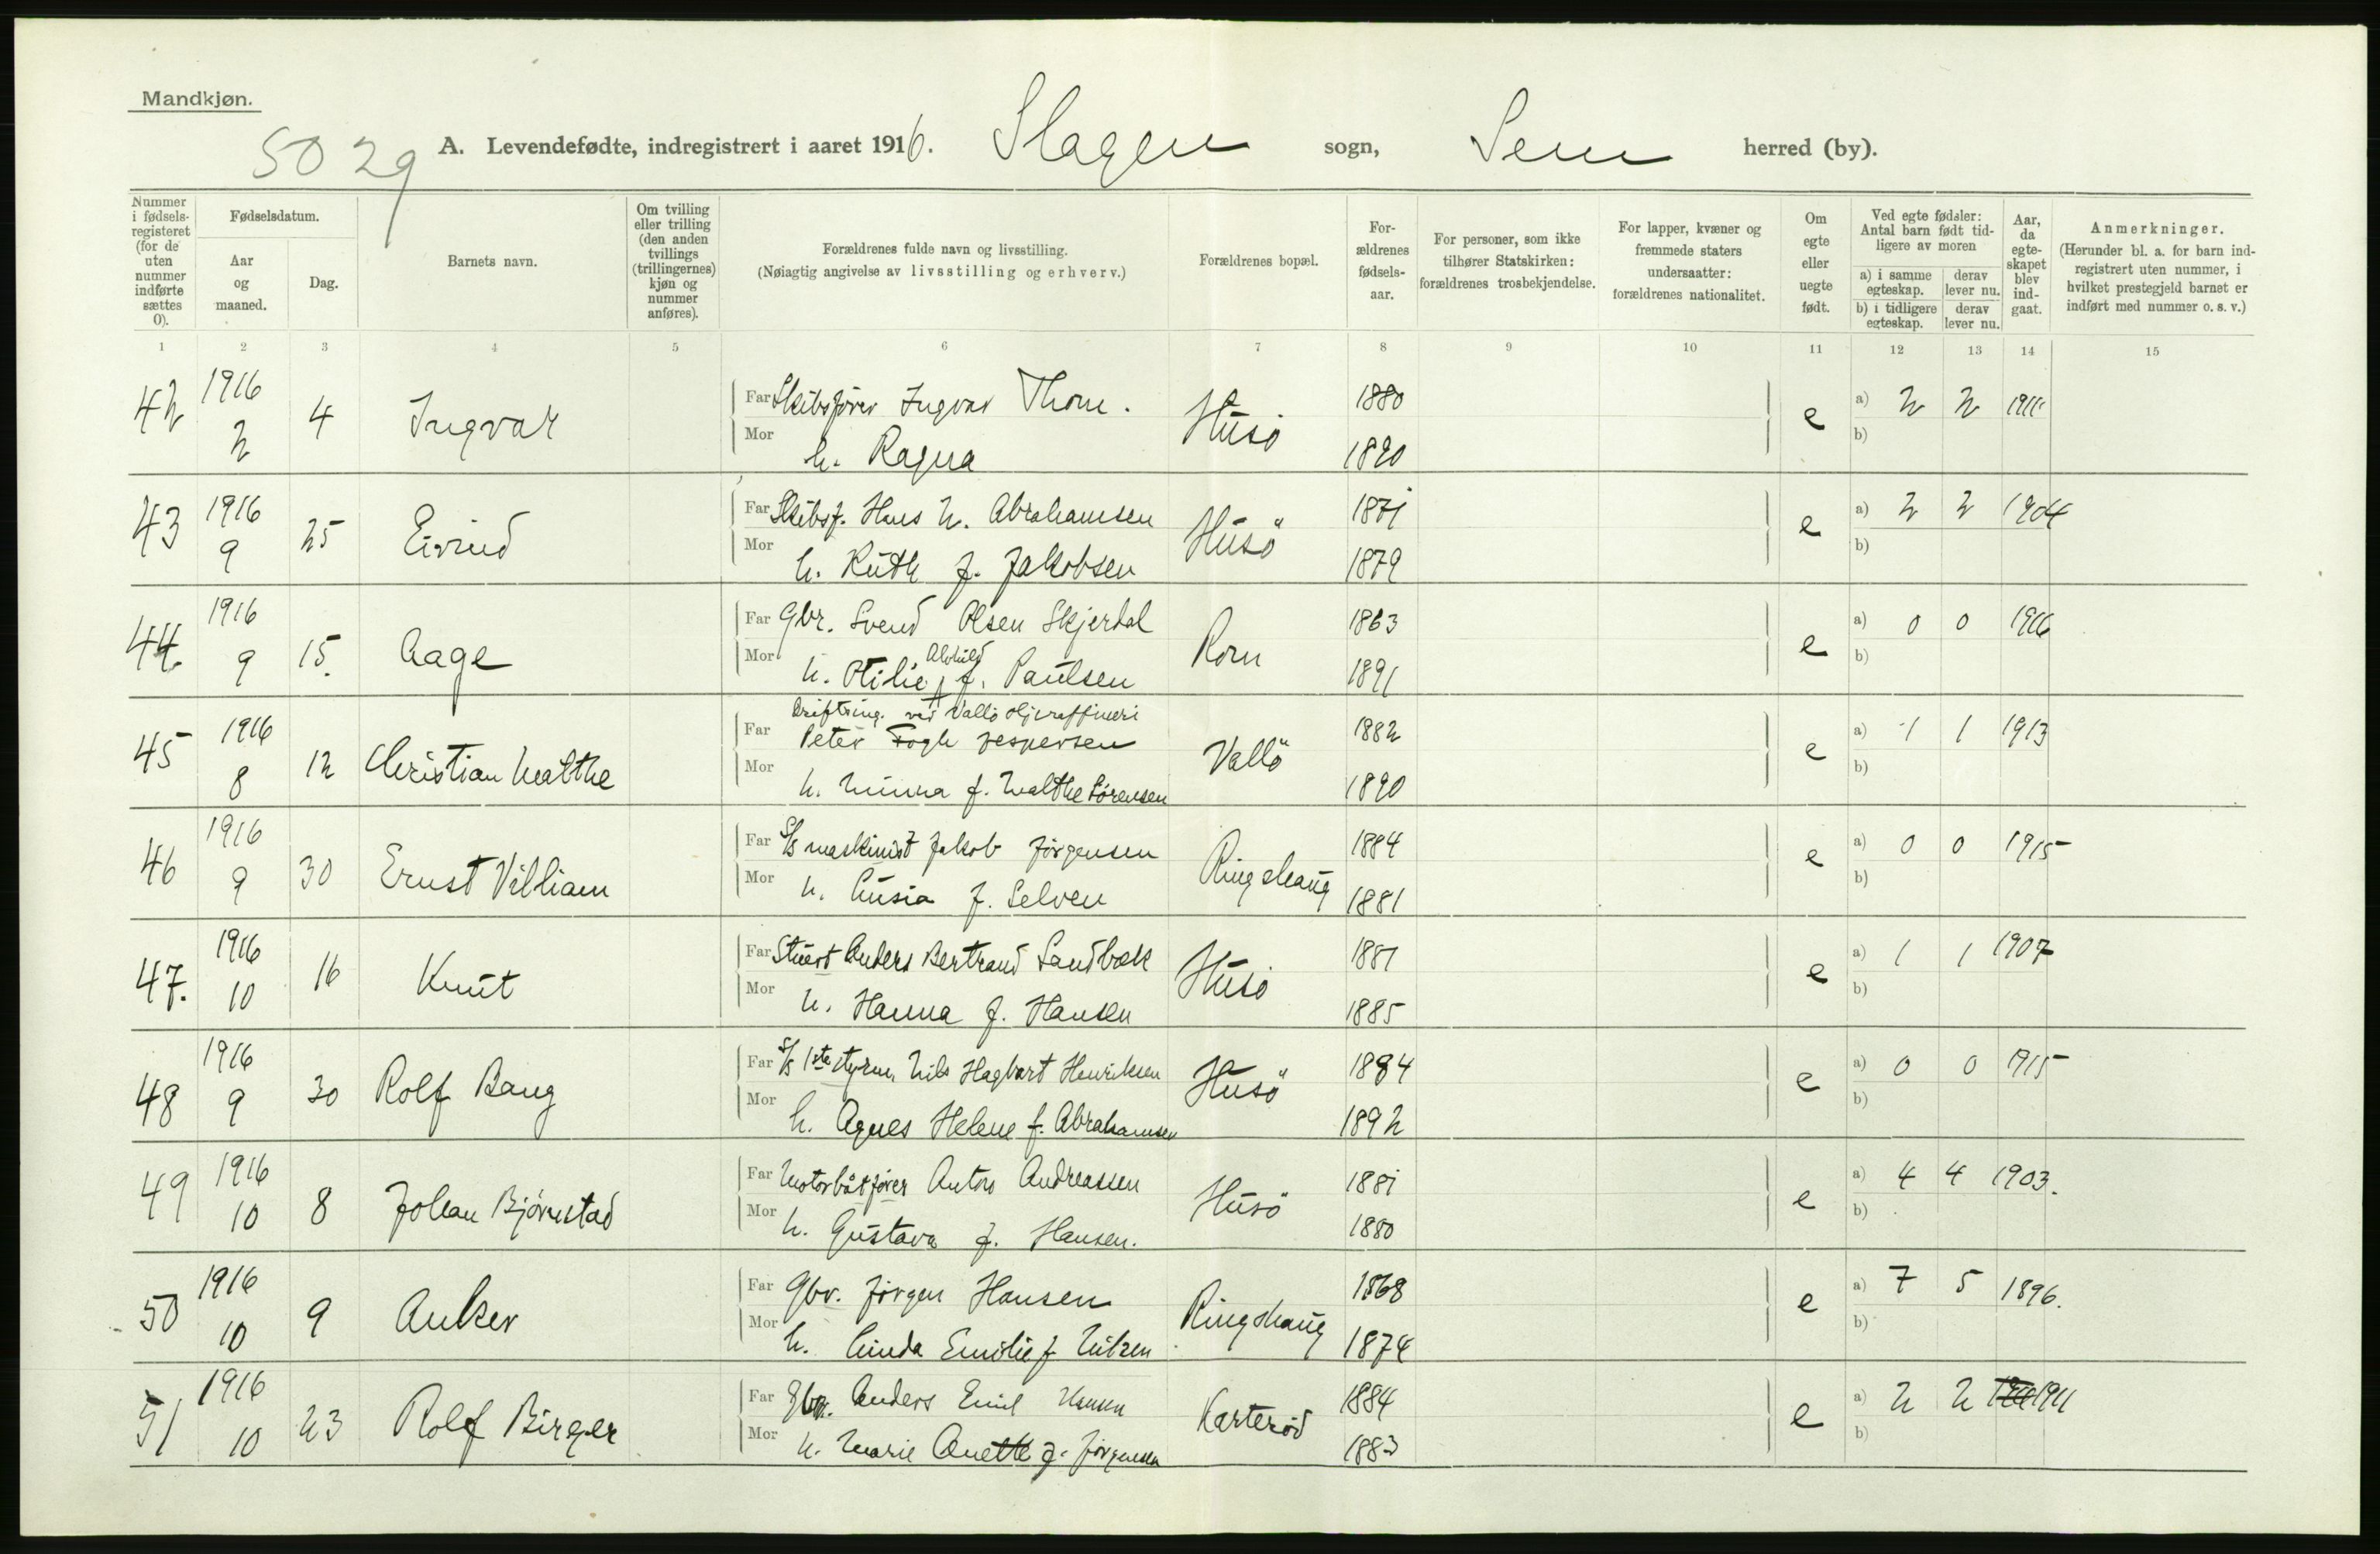 Mandkjøn.
5029 A. Levendefødte, indregistrert i aaret 1916. Slagen sogn, Sem herred (by).
Nummer i fødsels-registeret (for de uten nummer indførte sættes 0).
Fødselsdatum.
Aar og maaned.
Dag.
Barnets navn.
Om tvilling eller trilling (den anden tvillings (trillingernes) kjøn og nummer anføres).
Forældrenes fulde navn og livsstilling.
(Nøiagtig angivelse av livsstilling og erhverv.)
Forældrenes bopæl.
For-ældrenes fødsels-aar.
For personer, som ikke tilhører Statskirken: forældrenes trosbekjendelse.
For lapper, kvæner og fremmede staters undersaatter: forældrenes nationalitet.
Om egte eller uegte født.
Ved egte fødsler: Antal barn født tid-ligere av moren
a) i samme egteskap. derav lever nu.
b) i tidligere egteskap. derav lever nu.
Aar, da egte-skapet blev ind-gaat.
Anmerkninger.
(Herunder bl. a. for barn ind-registrert uten nummer, i hvilket prestegjeld barnet er indført med nummer o. s. v.)
1 2 3 4 5 6 7 8 9 10 11 12 13 14 15
42 1916 2 4 Ingvar Far Skibsfører Ingvar Thom. Husö 1880 e a) 2 2 1911
Mor h. Ragna 1890 b)
43 1916 9 25 Eivind Far Skibsf. Hans N. Abrahamsen Husö 1871 e a) 2 2 1904
Mor h. Ruth f. Jakobsen 1879 b)
44. 1916 9 15. Aage Far Gbr. Svend Olsen Skjerdal Rom 1863 e a) 0 0 1916
Alvhild
Mor h. Otilie f. Paulsen 1891 b)
Driftsing. ved Vallö Oljeraffineri
45 1916 8 12 Christian Malthe Far Peter Fogh Jespersen Vallö 1882 e a) 1 1 1913
Mor h. Minna f. Malthe Sørensen 1890 b)
46 1916 9 30 Ernst Villiam Far S/S maskinist Jakob Jörgensen Ringshaug 1884 e a) 0 0 1915
Mor h. Lusia f. Selven 1881 b)
47. 1916 10 16 Knut Far Stuert Anders Bertrand Sandbæk Husö 1881 e a) 1 1 1907
Mor h. Hanna f. Hansen 1885 b)
48 1916 9 30 Rolf Bang Far S/S 1ste styrm. Nils Hagbart Henriksen Husö 1884 e a) 0 0 1915
Mor h. Agnes Helene f. Abrahamsen 1892 b)
49 1916 10 8 Johan Bjørnstad Far Motorbåtfører Anton Andreassen Husö 1881 e a) 4 4 1903.
Mor h. Gustava f. Hansen. 1880 b)
50 1916 10 9 Anker Far Gbr. Jörgen Hansen Ringshaug 1868 e a) 7 5 1896.
Mor h. Linda Emilie f. Nilsen 1874 b)
51 1916 10 23 Rolf Birger Far Gbr. Anders Emil Hansen Karterød 1884 e a) 2 2 1911
Mor h. Marie Anette f. Jörgensen 1883 b)